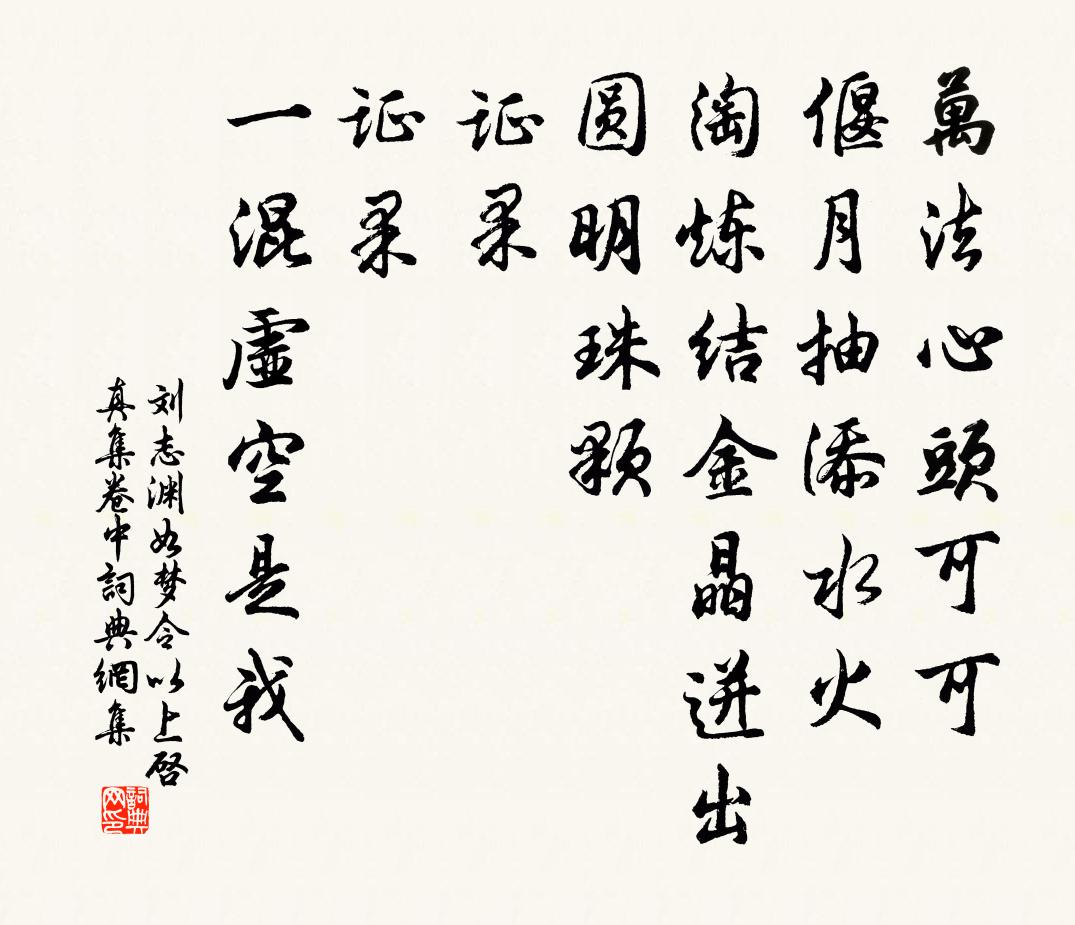 萬法心頭可可
偃月抽添水火
淘炼结金晶迸出
圆明珠颗
证果
证果
一混虚空是我
刘志渊如梦令以上启
真集卷中詞典網集
詞典网印